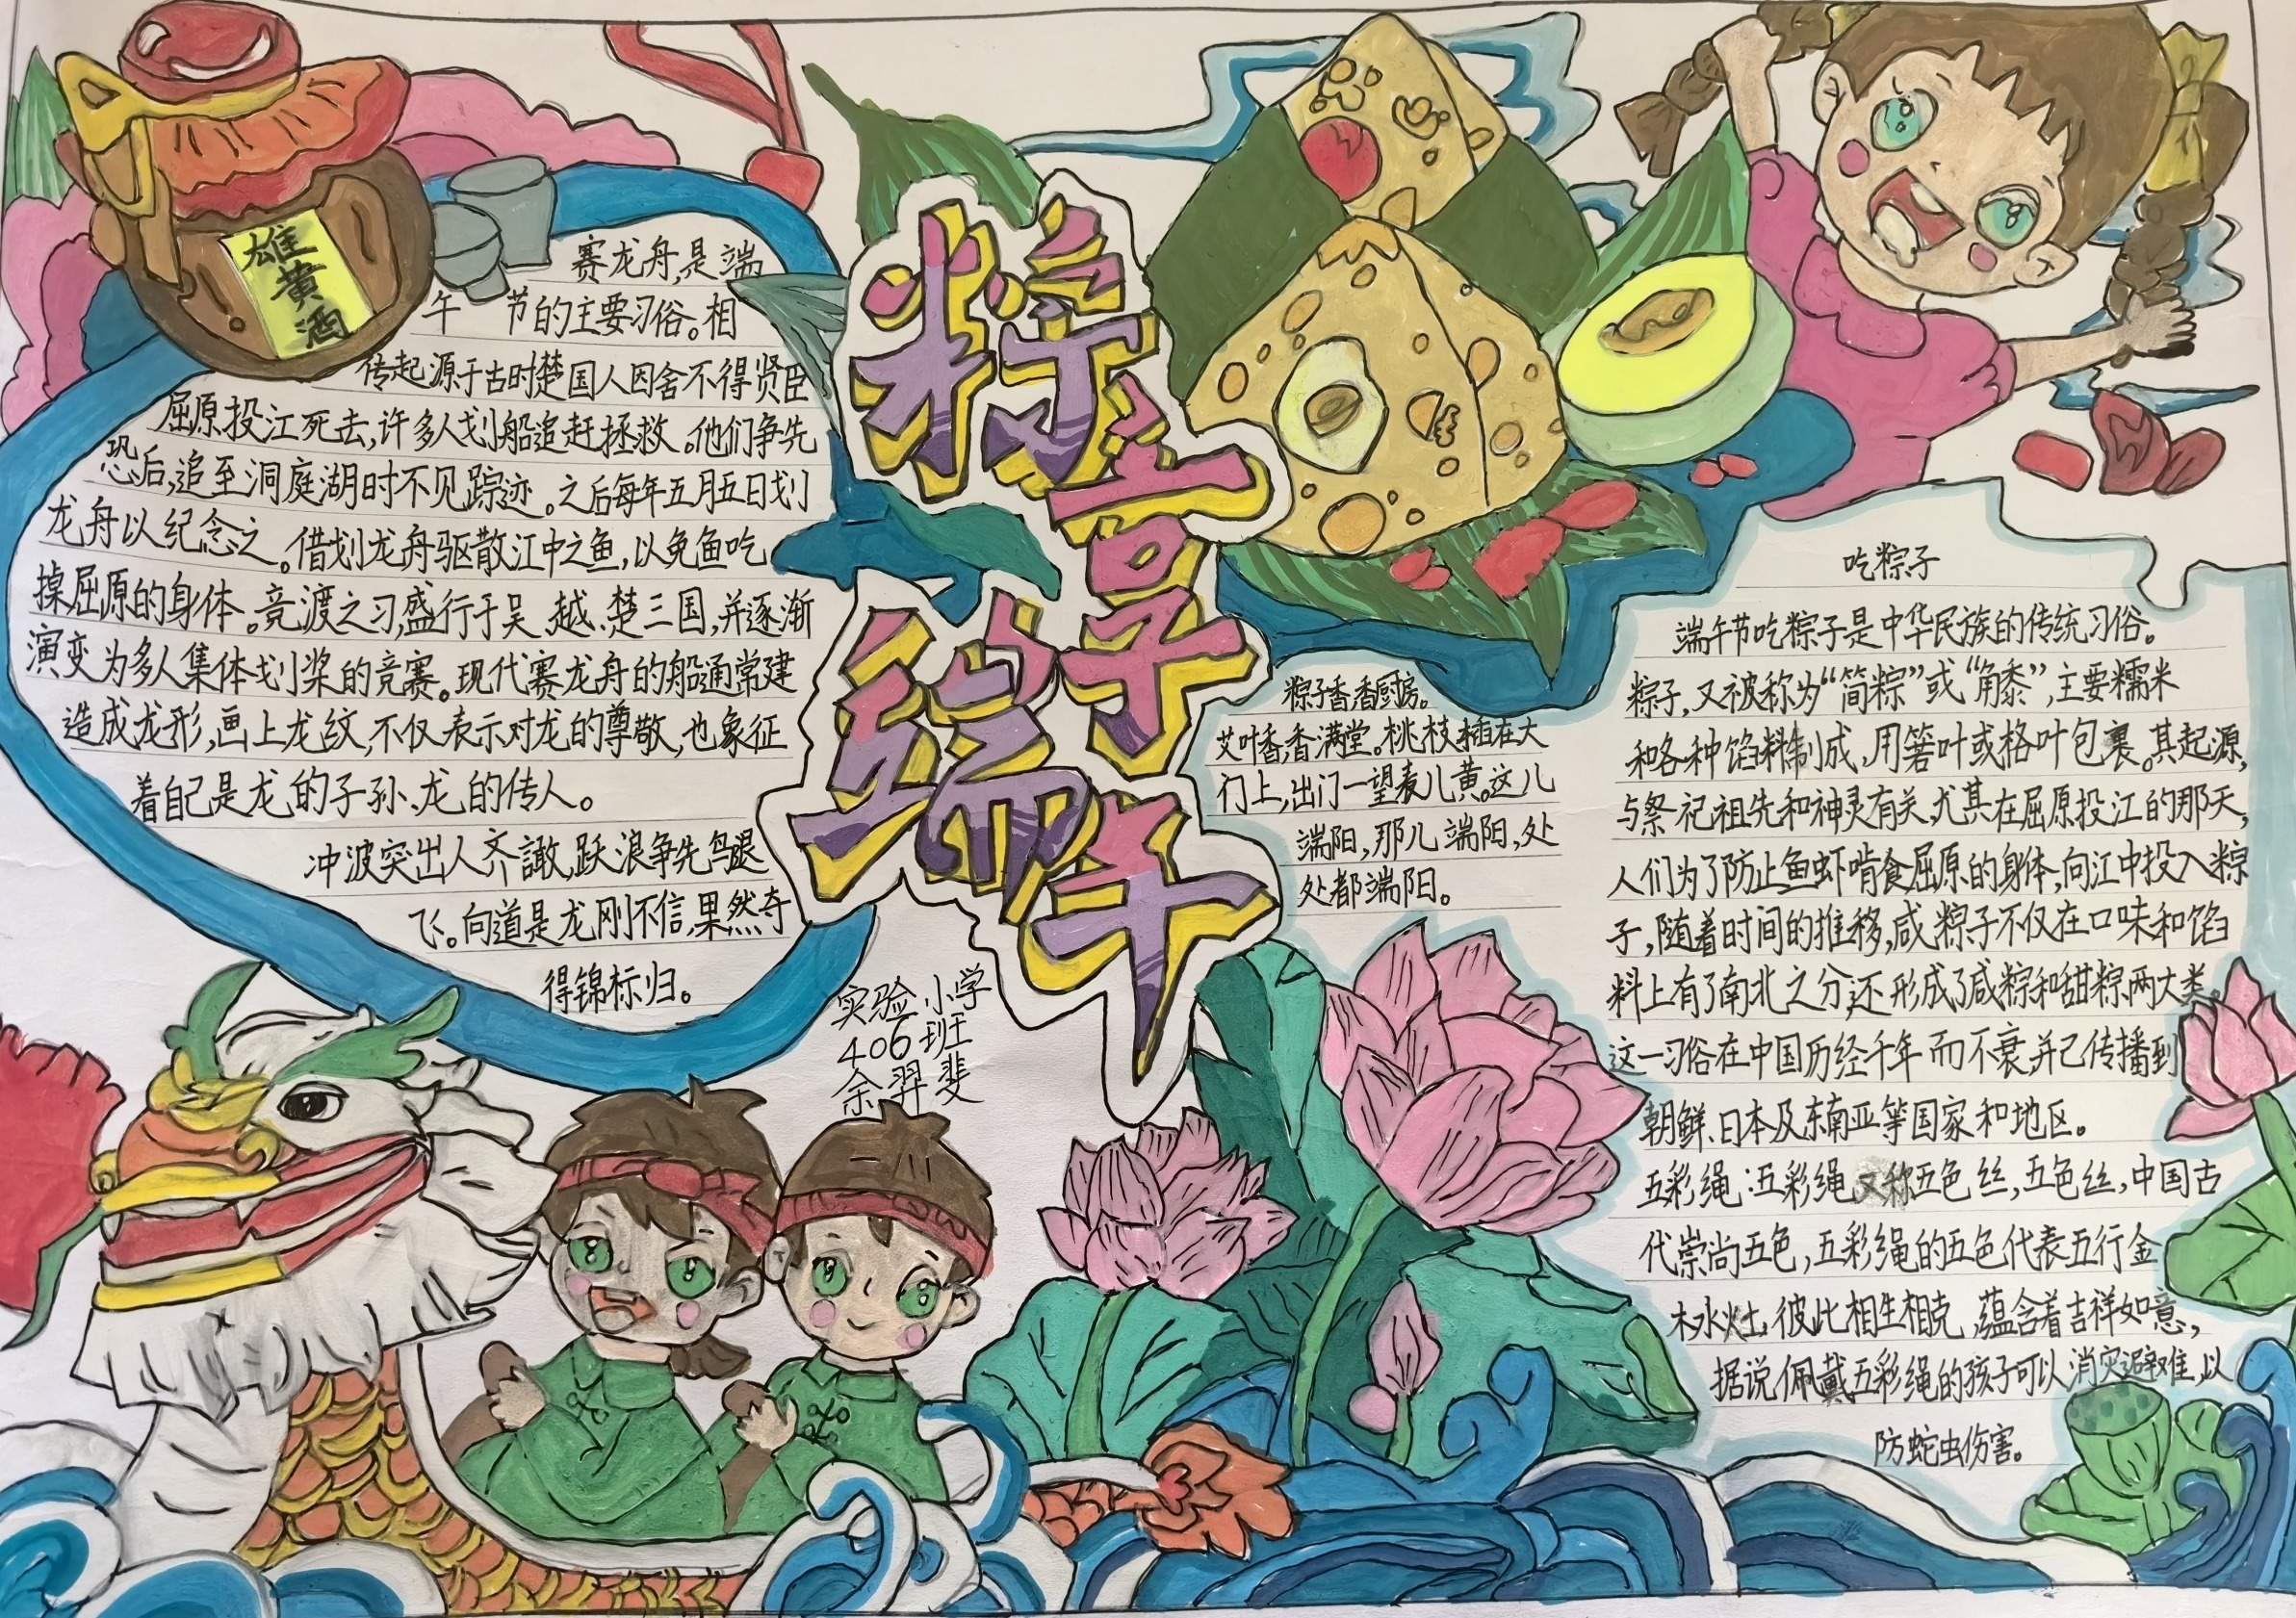 雄黄酒
赛龙舟,是端
午 节的主要习俗。相
传起源于古时楚国人因舍不得贤臣
屈原投江死去,许多人划船追赶拯救。他们争先
恐后,追至洞庭湖时不见踪迹。之后每年五月五日划
龙舟以纪念之。借划龙舟驱散江中之鱼,以免鱼吃
掉屈原的身体。竞渡之习,盛行于吴、越、楚三国,并逐渐
演变为多人集体划桨的竞赛。现代赛龙舟的船通常建
造成龙形,画上龙纹,不仅表示对龙的尊敬,也象征
着自己是龙的子孙、龙的传人。
冲波突出人齐譀,跃浪争先鸟退
飞。向道是龙刚不信,果然夺
得锦标归。
粽享
端午
实验小学
406班
余羿斐
粽子香,香厨房。
艾叶香,香满堂。桃枝插在大
门上,出门一望麦儿黄。这儿
端阳,那儿端阳,处
处都端阳。
吃粽子
端午节吃粽子是中华民族的传统习俗。
粽子,又被称为“简粽”或“角黍”,主要糯米
和各种馅料制成,用箬叶或格叶包裹。其起源,
与祭祀祖先和神灵有关,尤其在屈原投江的那天,
人们为了防止鱼虾啃食屈原的身体,向江中投入粽
子,随着时间的推移,咸粽子不仅在口味和馅
料上有了南北之分,还形成了咸粽和甜粽两大类。
这一习俗在中国历经千年而不衰,并已传播到
朝鲜、日本及东南亚等国家和地区。
五彩绳:五彩绳又称五色丝,五色丝,中国古
代崇尚五色,五彩绳的五色代表五行金
木水火土,彼此相生相克,蕴含着吉祥如意,
据说佩戴五彩绳的孩子可以消灾避难,以
防蛇虫伤害。